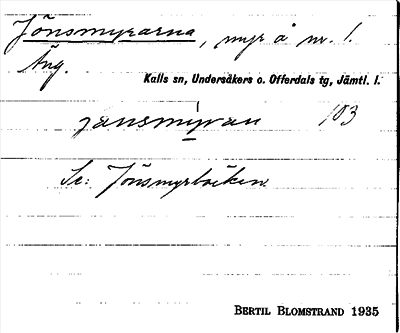 Jönsmyrarna, myr å nr. 1.
Äng.
Kalls sn, Undersåkers o. Offerdals tg, Jämtl. l.
jansmyran 103
Se: Jönsmyrbäcken
BERTIL BLOMSTRAND 1935